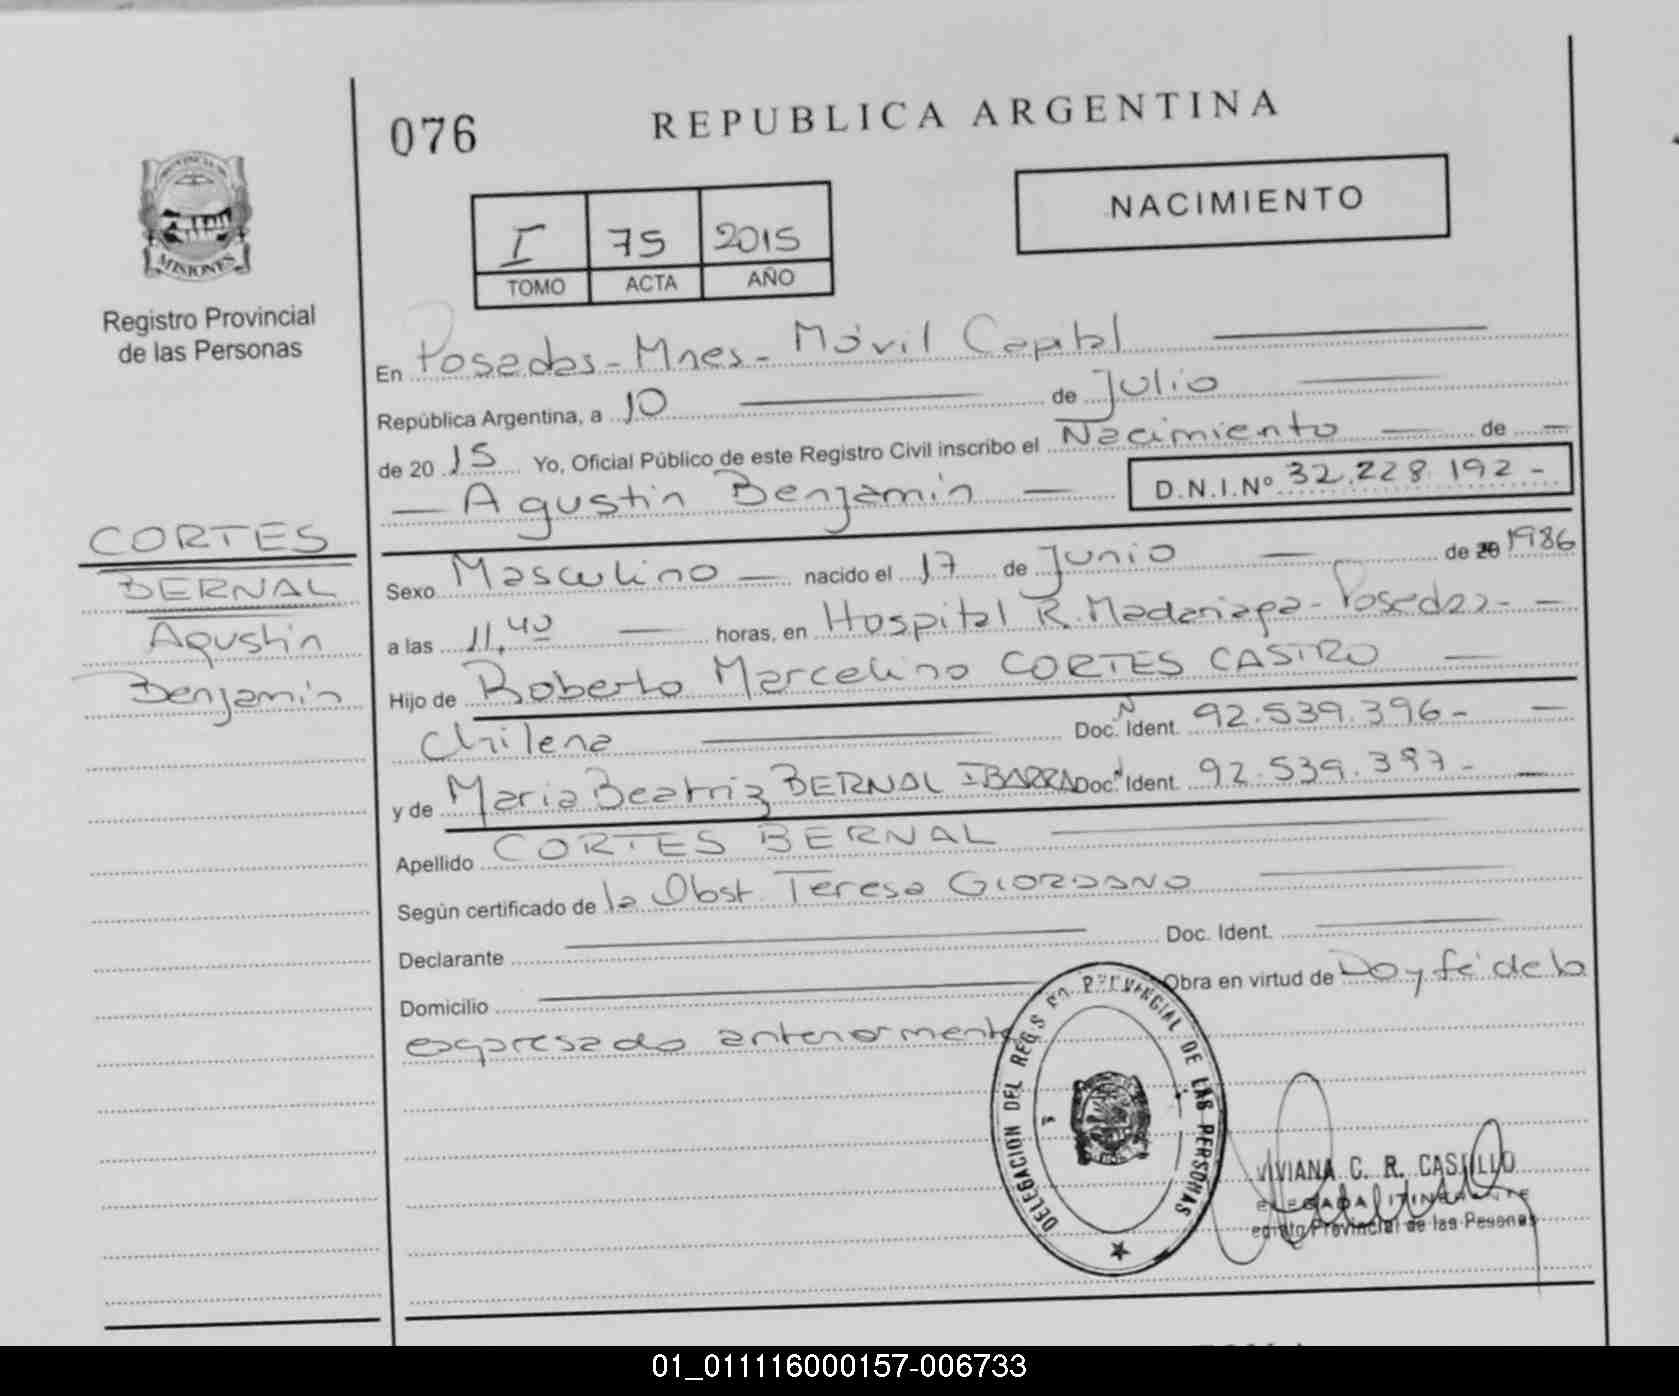 076
REPUBLICA ARGENTINA
NACIMIENTO
I 75 2015
TOMO ACTA AÑO
MISIONES
Registro Provincial
de las Personas
CORTES
BERNAL
Agustin
Benjamín
En Posadas - Mnes - Móvil Capital
República Argentina, a 10 de Julio
de 20 15 Yo, Oficial Público de este Registro Civil inscribo el Nacimiento de
Agustin Benjamin D.N.I.Nº 32.228.192-
Sexo Masculino nacido el 17 de Junio de 20 1986
a las 11,40 horas, en Hospital R. Madariaga - Posadas -
Hijo de Roberto Marcelino CORTES CASTRO
Chilena Doc. N Ident. 92.539.396-
y de Maria Beatriz BERNAL IBARRA Doc. Ident. 92.539.397-
Apellido CORTES BERNAL
Según certificado de la Obst. Teresa GIORDANO
Declarante Doc. Ident.
Domicilio Obra en virtud de Doy fé de lo
expresado anteriormente
DELEGACION DEL REG. PROVINCIAL DE LAS PERSONAS
VIVIANA C. R. CASTILLO
DELEGADA ITINERANTE
Registro Provincial de las Pesonas
01_011116000157-006733